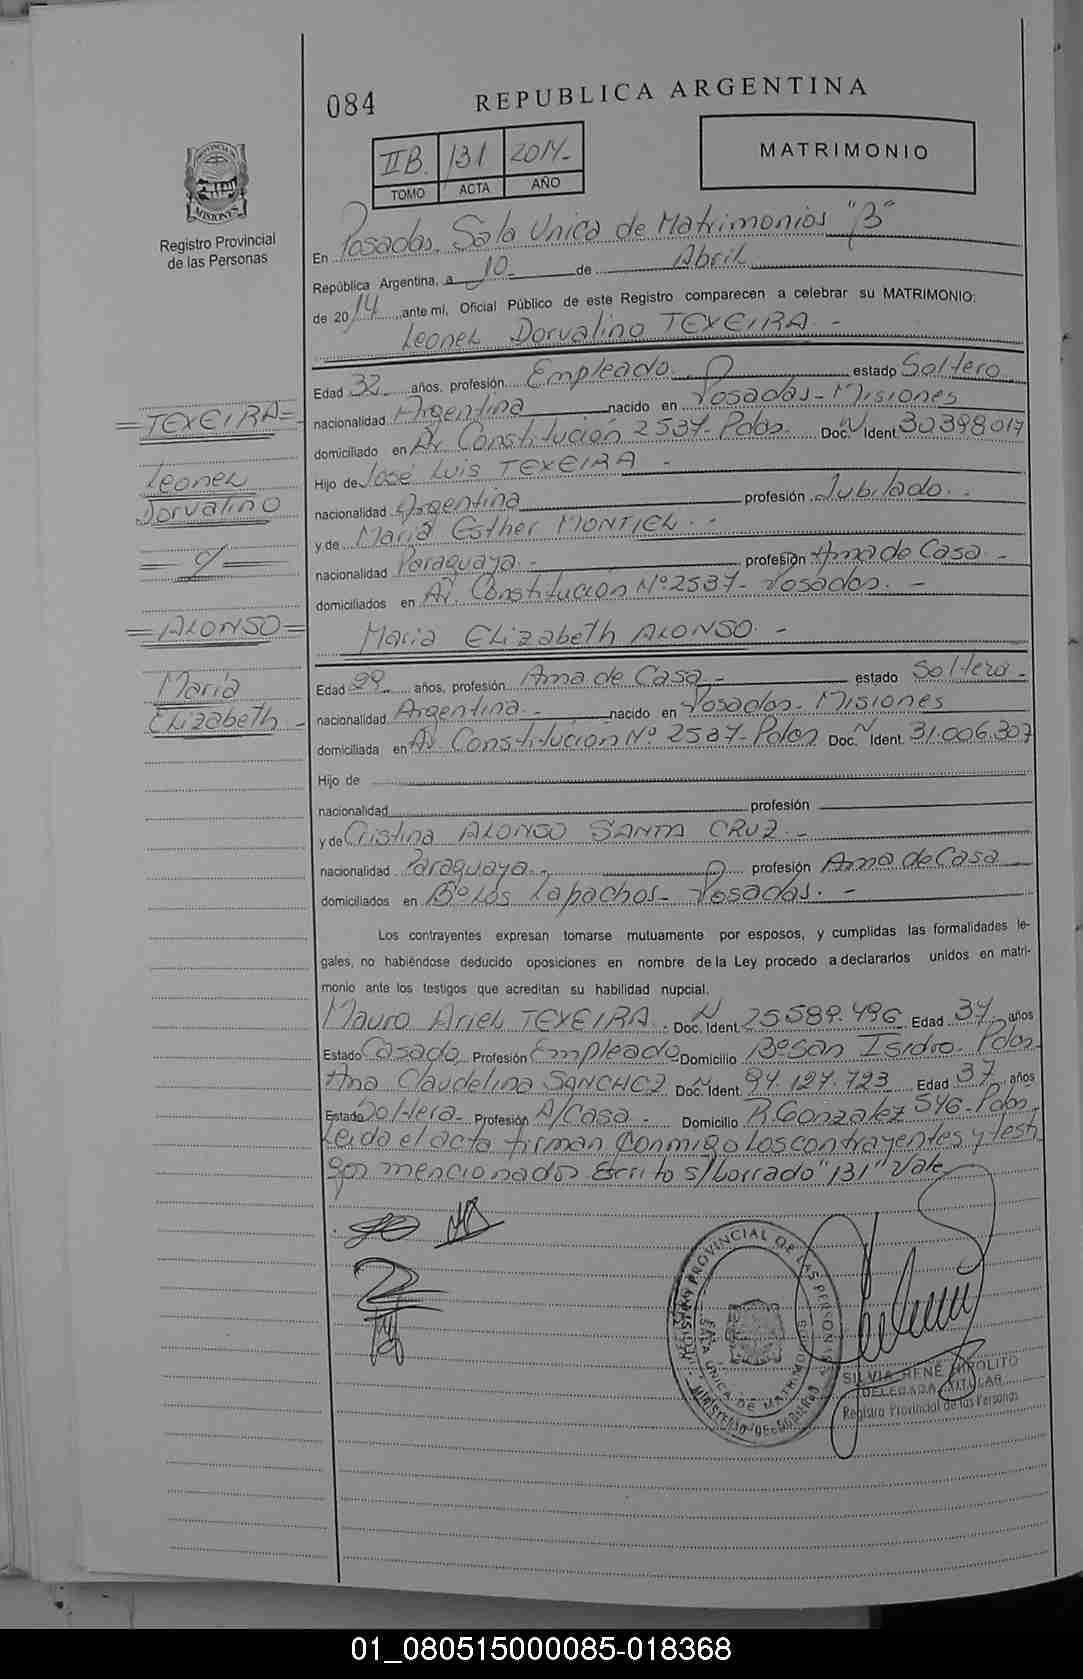 084
REPUBLICA ARGENTINA
IIB. 131 2014-
TOMO ACTA AÑO
MATRIMONIO
PROVINCIA DE MISIONES
Registro Provincial
de las Personas
En Posadas, Sala Unica de Matrimonios "B"
República Argentina, a 10 de Abril
de 2014 ante mí, Oficial Público de este Registro comparecen a celebrar su MATRIMONIO:
Leonel Dorvalino TEXEIRA.-
Edad 32 años, profesión Empleado estado Soltero
=TEXEIRA=
nacionalidad Argentina nacido en Posadas-Misiones
domiciliado en Av. Constitución 2537-Pdas. Doc.N Ident. 30398017
Leonel
Hijo de José Luis TEXEIRA -
Dorvalino
nacionalidad Argentina profesión Jubilado.-
y de María Esther MONTIEL.-
=c/=
nacionalidad Paraguaya.- profesión Ama de Casa-
domiciliados en Av. Constitución Nº2537-Posadas.-
=ALONSO=
Maria Elizabeth ALONSO.-
María
Edad 29 años, profesión Ama de Casa- estado Soltera-
Elizabeth-
nacionalidad Argentina.- nacido en Posadas-Misiones
domiciliada en Av. Constitución Nº 2537-Pdas Doc.N Ident. 31.006.307
Hijo de
nacionalidad profesión
y de Cristina ALONSO SANTA CRUZ.-
nacionalidad Paraguaya.- profesión Ama de Casa
domiciliados en Bº Los Lapachos-Posadas.-
Los contrayentes expresan tomarse mutuamente por esposos, y cumplidas las formalidades le-
gales, no habiéndose deducido oposiciones en nombre de la Ley procedo a declararlos unidos en matri-
monio ante los testigos que acreditan su habilidad nupcial.
Mauro Ariel TEXEIRA.- Doc.N Ident. 25.589.496 Edad 37 años
Estado Casado Profesión Empleado Domicilio Bº San Isidro-Pdas-
Ana Claudelina SANCHEZ Doc.N Ident. 94.127.723 Edad 37 años
Estado Soltera- Profesión A/Casa- Domicilio R. Gonzalez 546-Pdas-
Leída el acta firman conmigo los contrayentes y testi
gos mencionados. Escrito s/borrado "131" Vale
REGISTRO PROVINCIAL DE LAS PERSONAS
SALA UNICA DE MATRIMONIOS
MINISTERIO DE GOBIERNO
SILVIA RENE HIPOLITO
DELEGADA TITULAR
Registro Provincial de las Personas
01_080515000085-018368